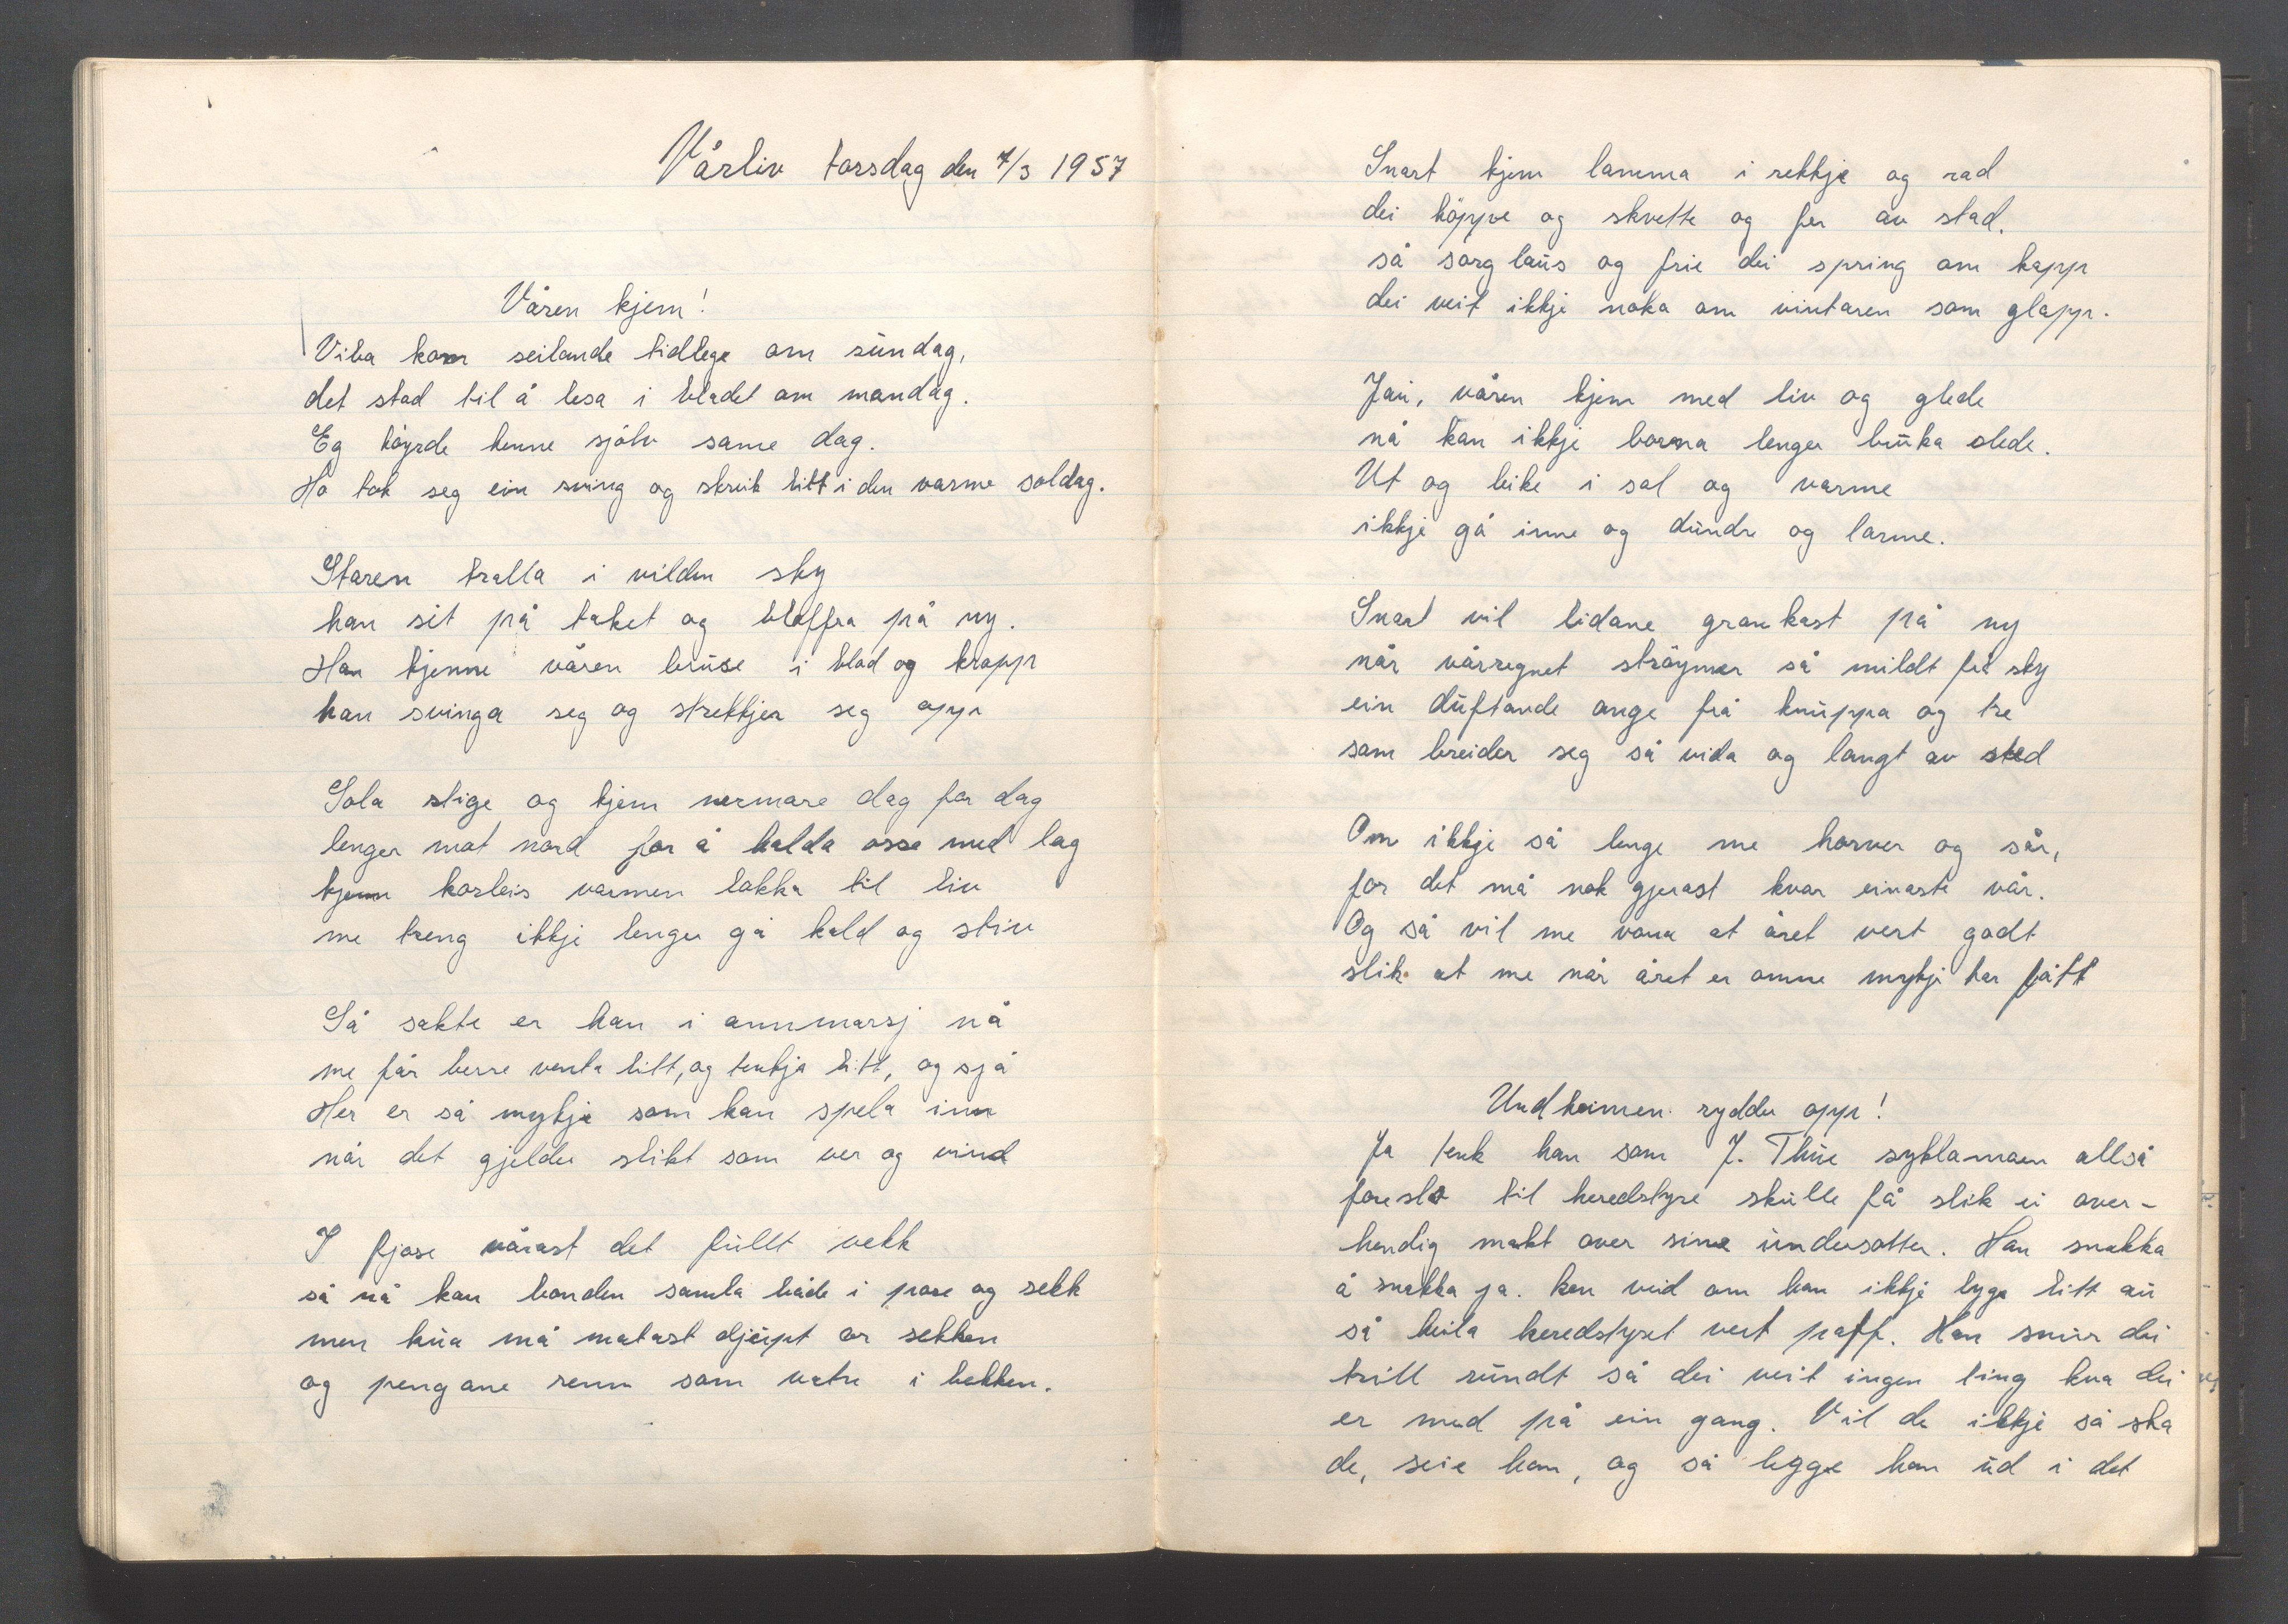 Vårliv torsdag den 7/3 1957
Våren kjem!
Viba kom seilande tidlege om sundag,
det stod til å lesa i bladet om mandag.
Eg höyrde henne sjölv same dag.
Ho tok seg ein sving og skreik litt i den varme soldag.
Staren tralla i vilden sky
han sit på taket og bloffra på ny.
Han kjenne våren bruse i blod og kropp
han svinga seg og strekkjer seg opp
Sola stige og kjem nermare dag for dag
lenger mot nord for å halda osse med lag
kjenn korleis varmen lokka til liv
me treng ikkje lenger gå kald og stiv
Så sakte er han i annmarsj nå
me får berre venta litt, og tenkja litt, og sjå
Her er så mykje som kan spela inn
når det gjelder slikt som ver og vind
I fjose vårast det fullt vekk
så nå kan bonden samla både i pose og sekk
men kua må matast djupt or sekken
og pengane renn som vatn i bekken.
Snart kjem lamma i rekkje og rad
dei höppe og skvette og fer av stad.
så sorglaus og frie dei spring om kapp
dei veit ikkje noka om vintaren som glapp.
Jau, våren kjem med liv og glede
nå kan ikkje borna lenger bruka slede.
Ut og leike i sol og varme
ikkje gå inne og dundre og larme.
Snart vil lidane gronkast på ny
når vårregnet ströymer så mildt frå sky
ein duftande ange frå knuppa og tre
som breider seg så vida og langt av sted
Om ikkje så lenge me horver og sår,
for det må nok gjerast kvar einaste vår.
Og så vil me vona at året vert godt
slik at me når året er omne mykje har fått
Undheimen ryddu opp!
Ja tenk han som J. Thue syklamaen allså
foreslo til heredstyre skulle få slik ei over-
hendig makt over sine undersotter. Han snakka
å snakka ja. ken veid om han ikkje lyge litt au
så heila heredstyret vert paff. Han snurr dei
trill rundt så dei veit ingen ting kva dei
er med på ein gang. Vil de ikkje så ska
de, seie han, og så legge han ud i det